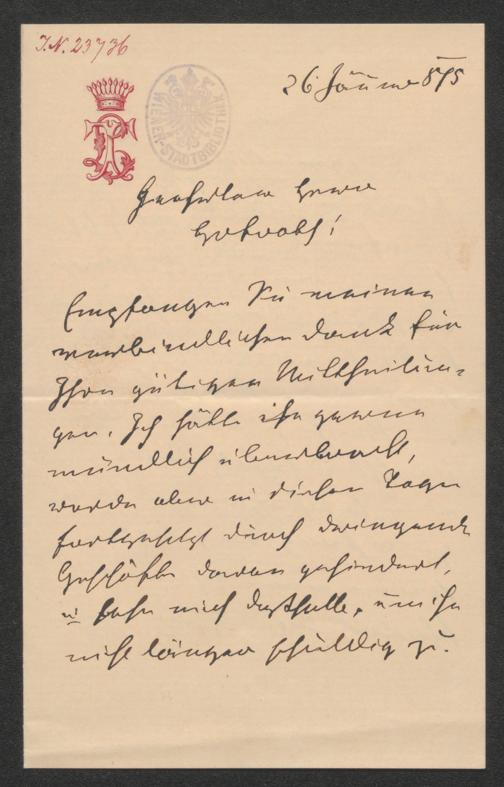 I.N. 23736
WIENER-STADTBIBLIOTHEK
26 Jänner 895
Geehrter Herr
Hofrath!
Empfangen Sie meinen
verbindlichsten Dank für
Ihre gütigen Mittheilun-
gen. Ich hätte ihn gerne
mündlich überbracht,
werde aber in diesen Tagen
fortgesetzt durch dringende
Geschäfte daran gehindert,
u sehe mich deßhalb, um ihn
nicht länger schuldig zu